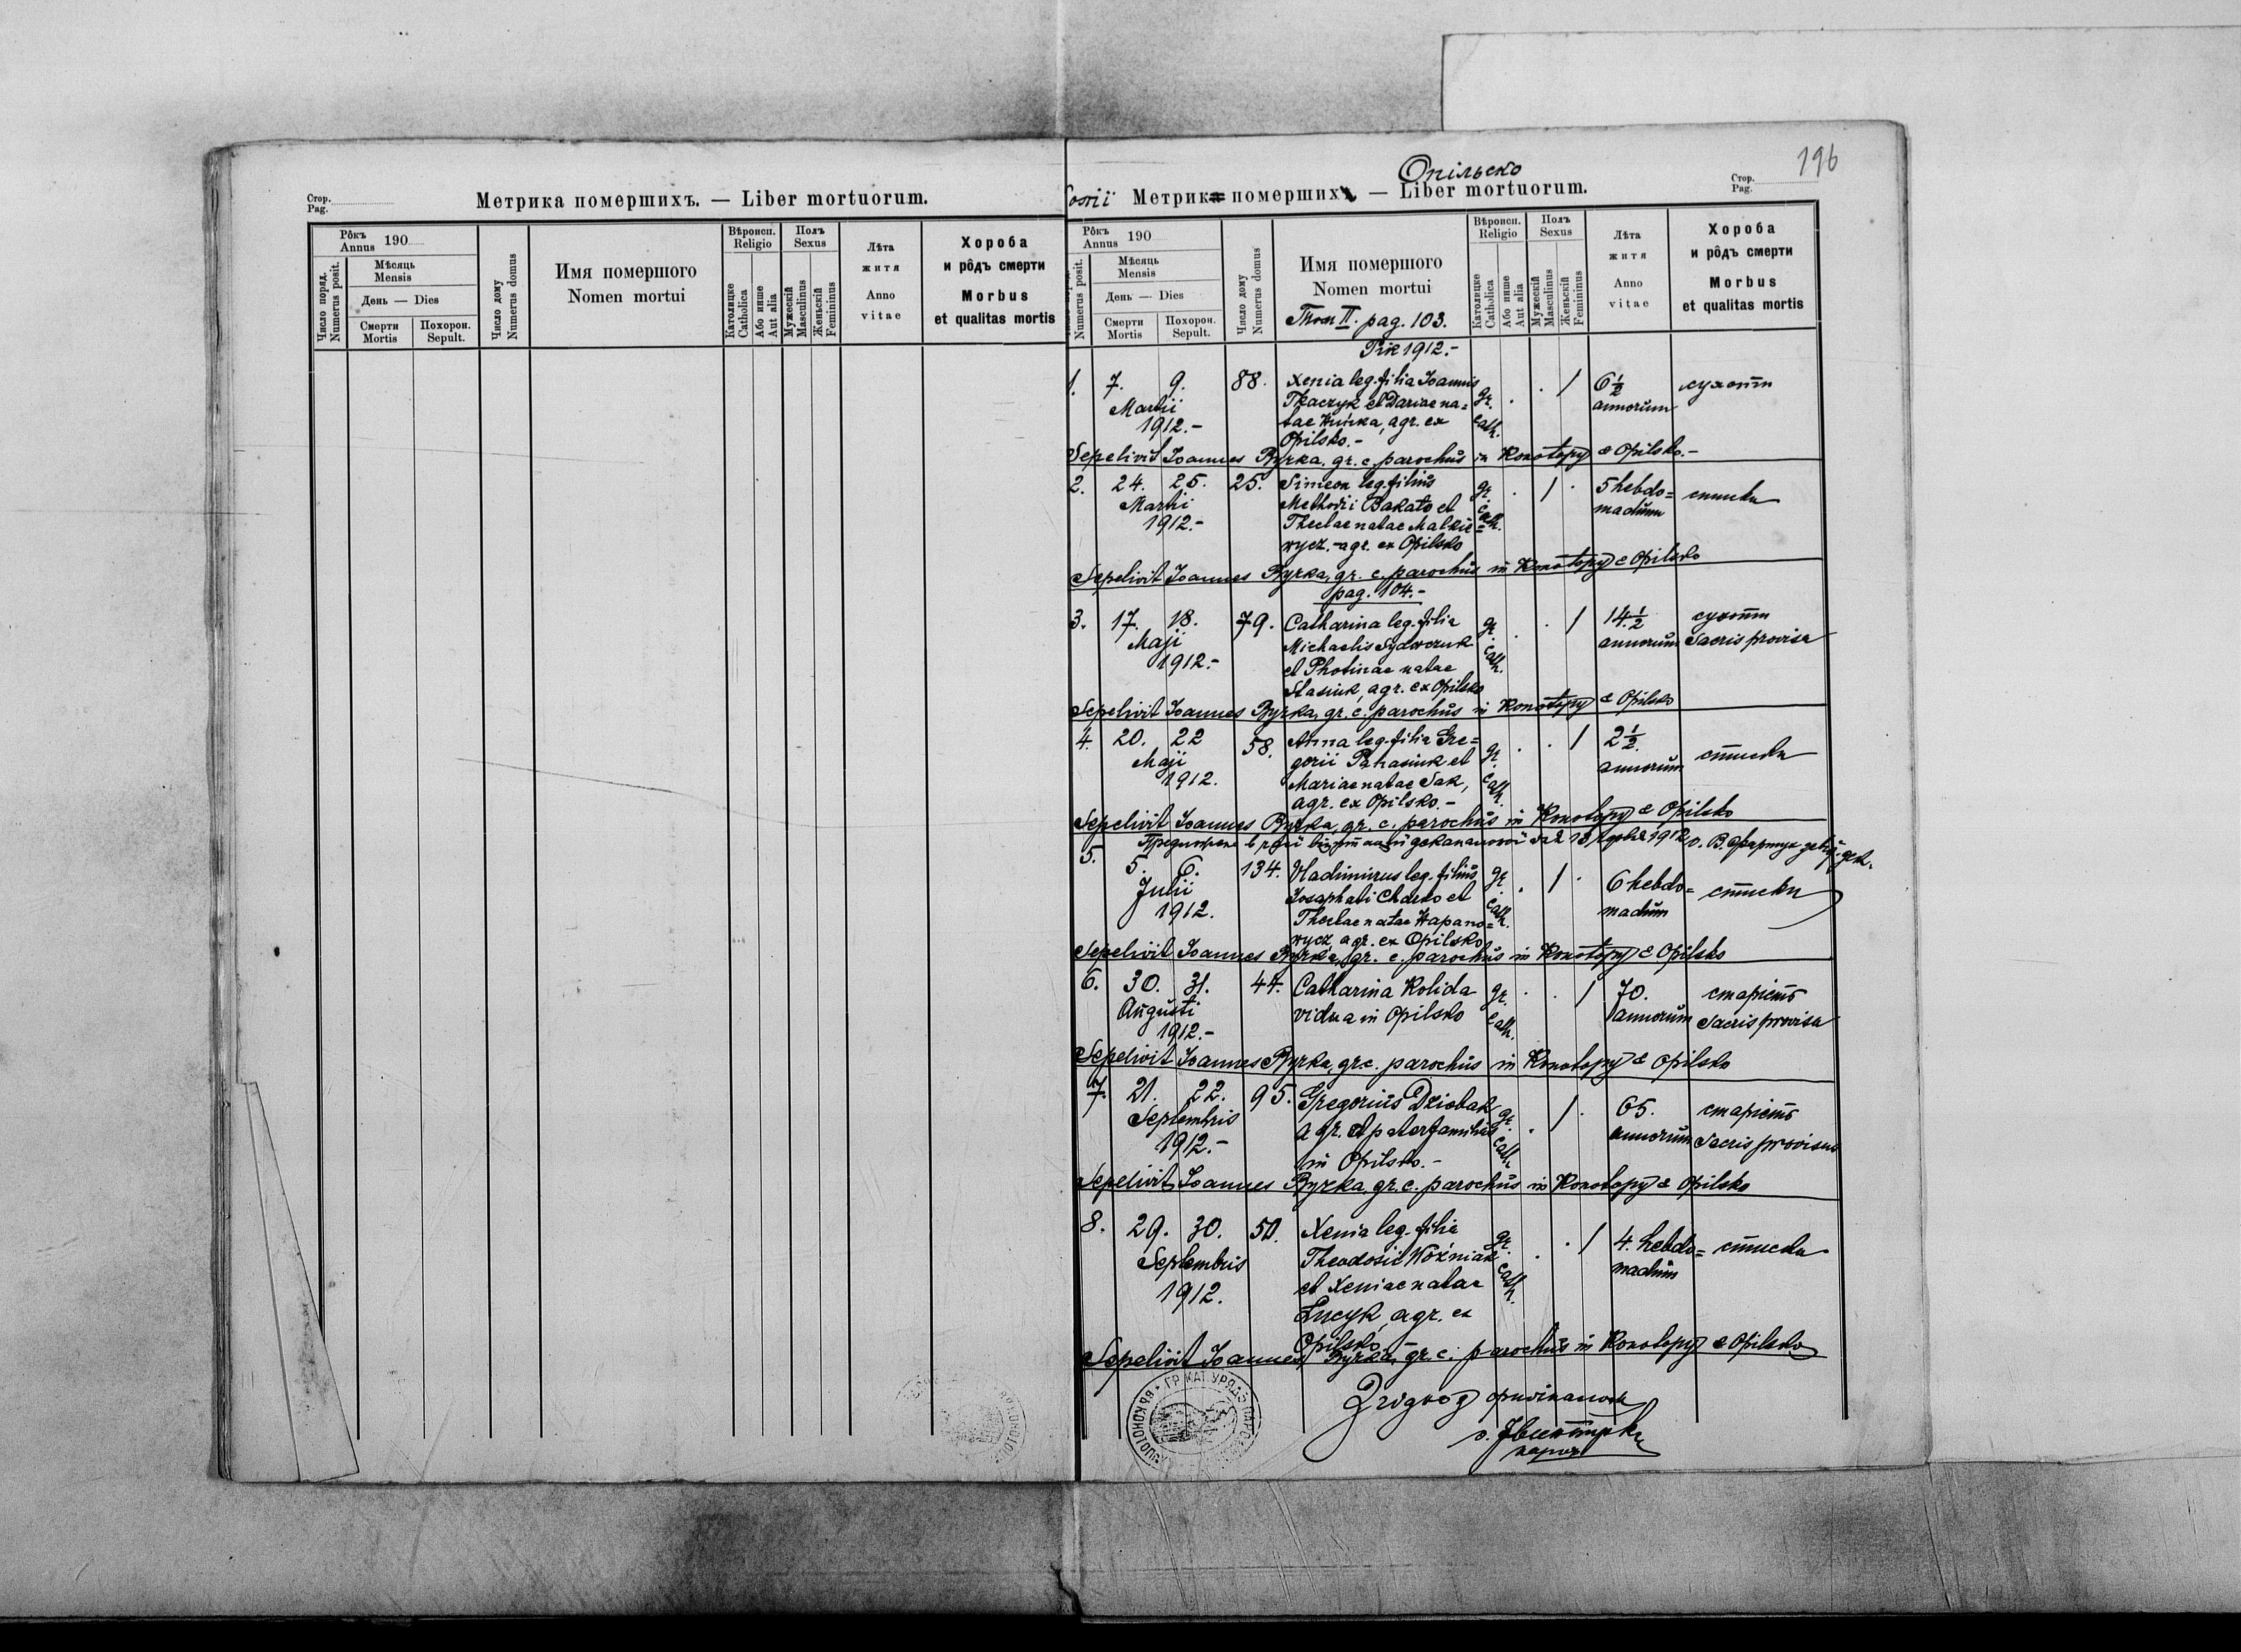 Стор.
Pag.
Метрика померших ъ. — Liber mortuorum.
Рôкъ
Annus 190
Число поряд.
Numerus posit.
Мѣсяць
Mensis
День — Dies
Смерти
Mortis
Похорон.
Sepult.
Число дому
Numerus domus
Имя помершого
Nomen mortui
Вѣроисп.
Religio
Католицке
Catholica
Або инше
Aut alia
Полъ
Sexus
Мужескій
Masculinus
Женьскій
Femininus
Лѣта
житя
Anno
vitae
Хороба
и рôдъ смерти
Morbus
et qualitas mortis
196
Опільско
Метрика померших — Liber mortuorum.
Стор.
Pag.
Рôкъ
Annus 190
Numerus posit.
Мѣсяць
Mensis
День — Dies
Смерти
Mortis
Похорон.
Sepult.
Число дому
Numerus domus
Имя помершого
Nomen mortui
Tom II. pag. 103.
Вѣроисп.
Religio
Католицке
Catholica
Або инше
Aut alia
Полъ
Sexus
Мужескій
Masculinus
Женьскій
Femininus
Лѣта
житя
Anno
vitae
Хороба
и рôдъ смерти
Morbus
et qualitas mortis
Рік 1912.-
1. 7. 9. 88. Xenia leg. filia Joannis gr. . . / 6 1/2 сухоти
Martii Tkaczyk et Dariae na= cath. annorum
1912.- tae Huńka, agr. ex
Opilsko.-
Sepelivit Joannes Byrka, gr. c. parochus in Konotopy & Opilsko.-
2. 24. 25. 25. Simeon leg. filius gr. . / . 5 hebdo= стиски
Martii Methodii Bakato et cath. madum
1912.- Theclae natae Malkie=
wycz.- agr. ex Opilsko
Sepelivit Joannes Byrka, gr. c. parochus in Konotopy & Opilsko
pag. 104.-
3. 17. 18. 79. Catharina leg. filia gr. . . / 14 1/2 сухоти
Maji Michaelis Sydorczuk cath. annorum Sacris provisa
1912.- et Photinae natae
Stasiuk, agr. ex Opilsko
Sepelivit Joannes Byrka, gr. c. parochus in Konotopy & Opilsko
4. 20. 22 58. Anna leg. filia Gre= gr. . . / 2 1/2. стиски
Maji gorii Panasiuk et cath. annorum
1912. Mariae natae Sak,
agr. ex Opilsko.-
Sepelivit Joannes Byrka, gr. c. parochus in Konotopy & Opilsko
1912 о. В.
5. 5. 6. 134. Vladimirus leg. filius gr. . / . 6 hebdo= стиски
Julii Josaphati Charko et cath. madum
1912. Theclae natae Hapano=
wycz, agr. ex Opilsko
Sepelivit Joannes Byrka, gr. c. parochus in Konotopy & Opilsko
6. 30. 31. 44. Catharina Kolida gr. . . / 70. старість
Augusti vidua in Opilsko cath. annorum Sacris provisa
1912.-
Sepelivit Joannes Byrka, gr. c. parochus in Konotopy & Opilsko
7. 21. 22. 95. Gregorius Dziobak gr. . / . 65. старість
Septembris agr. et paterfamilias cath. annorum Sacris provisus
1912.- in Opilsko.-
Sepelivit Joannes Byrka, gr. c. parochus in Konotopy & Opilsko
8. 29. 30. 50. Xenia leg. filia gr. . . / 4. hebdo= стиски
Septembris Theodosii Woźniak cath. madum
1912. et Xeniae natae
Łucyk, agr. ex
Opilsko.-
Sepelivit Joannes Byrka, gr. c. parochus in Konotopy & Opilsko
о.
парох